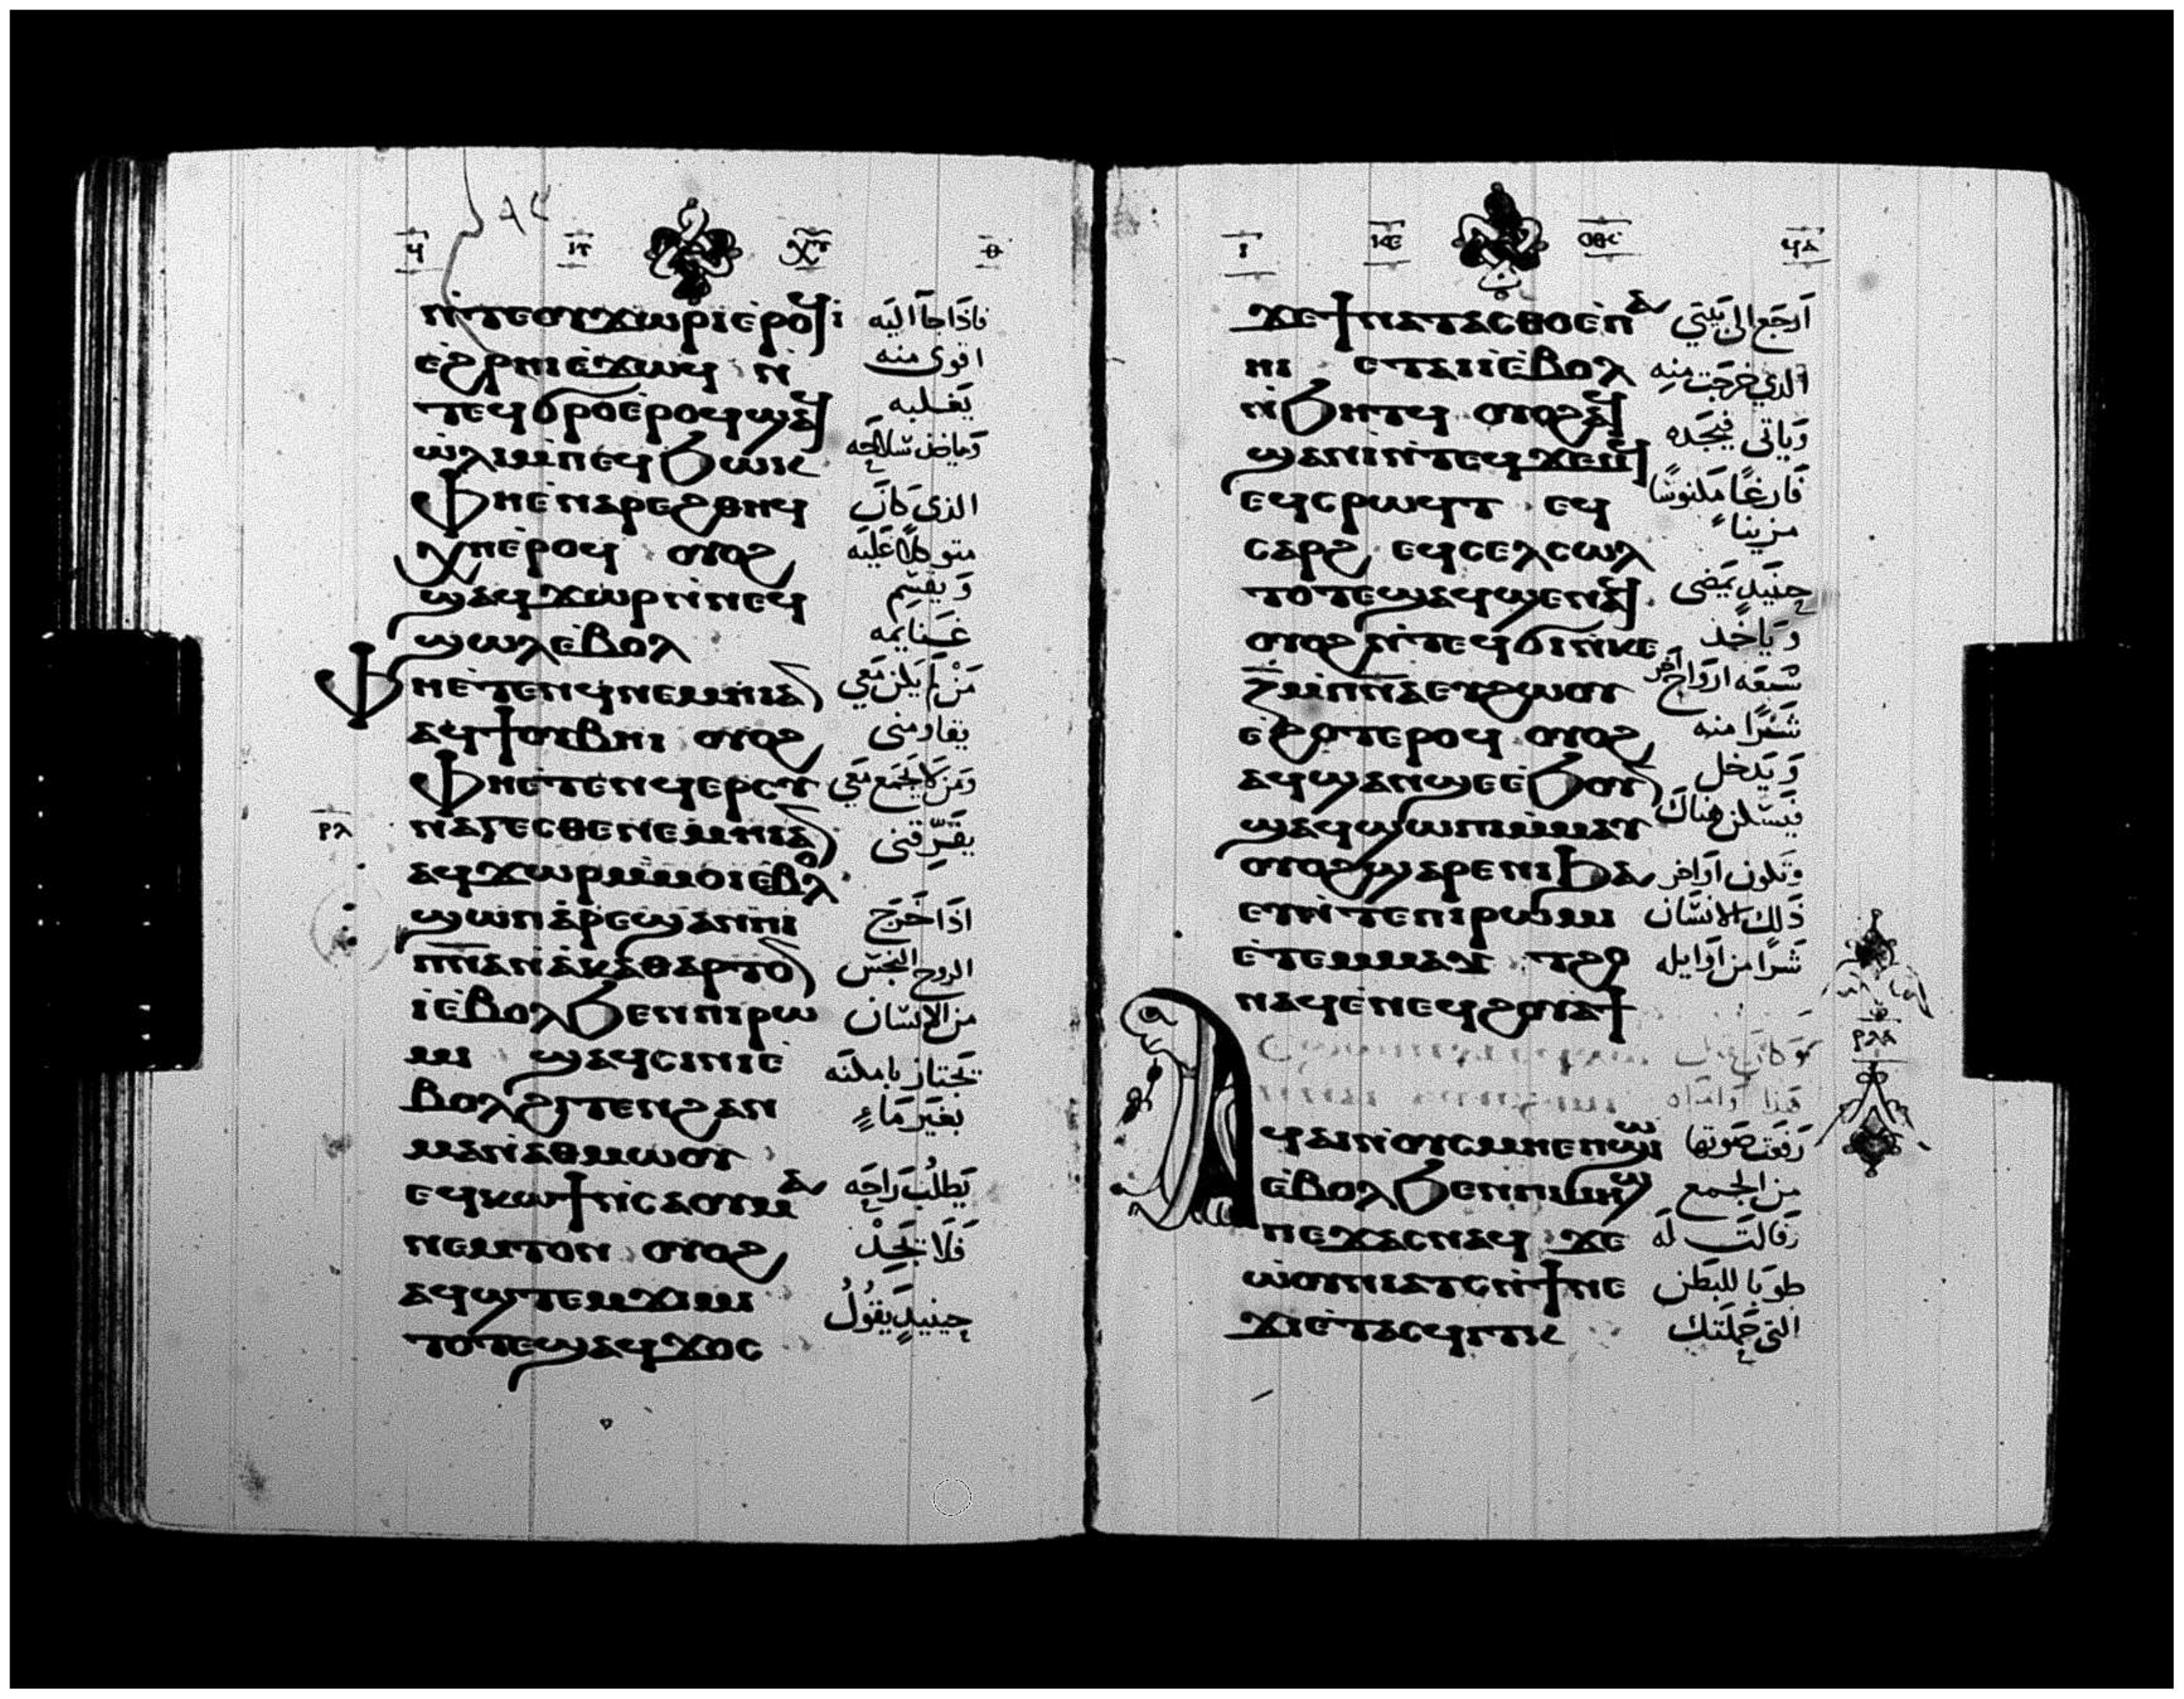 ⲛ̀ⲧⲉⲟⲩϫⲱⲣⲓ ⲉ̀ⲣⲟϥ ⲓ̀
فاذا جآ اليه
ⲉ̀ϩⲣⲏⲓ ⲉ̀ϫⲱϥ ⲛ̀
اقوى منه
ⲧⲉϥϭⲣⲟ ⲉ̀ⲣⲟϥ ϣⲁϥ
يغلبه
ⲱ̀ⲗⲓ ⲙ̀ⲡⲉϥϧⲱⲕ
سلاحه
ⲫⲏ ⲉ̀ⲛⲁⲣⲉ ϩⲑⲏϥ
الذى كان
ⲭⲏ ⲉ̀ⲣⲟϥ ⲟⲩⲟϩ
متوكلا عليه
ϣⲁϥϫⲱⲣ ⲛ̀ⲛⲉϥ
ويقسم
ϣⲱⲗ ⲉ̀ⲃⲟⲗ
غنايمه
ⲫⲏ ⲉ̀ⲧⲉⲛϥⲛⲉⲙⲏⲓ ⲁⲛ
من لم يكن معي
ⲁϥϯ ⲟⲩⲃⲏⲓ ⲟⲩⲟϩ
يقاومنى
ⲫⲏ ⲉ̀ⲧⲉⲛϥⲉⲣⲥⲩ
ومن لا يجمع معي
ⲣⲗ
ⲛⲁⲅⲉⲥⲑⲉ ⲛⲉⲙⲏⲓ ⲁⲛ
يفرقنى
ⲁϥϫⲱⲣ ⲙ̀ⲙⲟⲓ ⲉ̀ⲃⲟⲗ
ϣⲱⲡ ⲁ̀ⲣⲉϣⲁⲛ ⲡⲓ
اذا خرج
ⲡⲛⲁ ⲛ̀ⲁ̀ⲕⲁⲑⲁⲣⲧⲟⲛ
الروح النجس
ⲓ̀ ⲉ̀ⲃⲟⲗ ϧⲉⲛ ⲡⲓⲣⲱ
من الانسان
ⲙⲓ ϣⲁϥⲥⲓⲛⲓ ⲉ̀
يجتاز بامكنه
ⲃⲟⲗ ϩⲓⲧⲉⲛ ϩⲁⲛ
بغير ماء
ⲙⲁ ⲛ̀ⲁⲑⲙⲱⲟⲩ
ⲉϥⲕⲱϯ ⲛ̀ⲥⲁ ⲟⲩⲙⲁ
يطلب راحه
ⲛⲉⲙⲧⲟⲛ ⲟⲩⲟϩ
فلا يجد
ⲁϥϣⲧⲉⲙϫⲓⲙⲓ
ⲧⲟⲧⲉ ϣⲁϥϫⲟⲥ
حينيد يقول
ϥⲁ
ϫⲉ ϯⲛⲁⲧⲁⲥⲑⲟ ⲉ̀ⲡⲁ
ارجع الى بيتي
ⲏⲓ ⲉⲧⲁⲓⲓ̀ ⲉ̀ⲃⲟⲗ
الذي خرجت منه
ⲛ̀ϧⲏⲧϥ ⲟⲩⲟϩ ⲁϥ
وياتى فيجده
ϣⲁⲛⲓ̀ ⲛ̀ⲧⲉϥϫⲉⲙϥ
فارغا مكنوسا
ⲉϥⲥⲣⲱϥⲧ ⲉϥ
مزينا
ⲥⲁⲣϩ ⲉϥⲥⲉⲗⲥⲱⲗ
ⲧⲟⲧⲉ ϣⲁϥϣⲉⲛⲁϥ
حينيد يمضى
ⲟⲩⲟϩ ⲛ̀ⲧⲉϥϭⲓ ⲛ̀ⲕⲉ
وياخذ
ⲍ̅ ⲙ̀ⲡⲛⲁ ⲉⲩϩⲱⲟⲩ
سبعه ارواح اخر
ⲉ̀ϩⲟⲧⲉⲣⲟϥ ⲟⲩⲟϩ
شرا منه
ⲁϥϣⲁⲛϣⲉ ⲉ̀ϧⲟⲩⲛ
ويدخل
ϣⲁϥϣⲱⲡⲓ ⲙ̀ⲙⲁⲩ
فيسكن هناك
ⲟⲩⲟϩ ϣⲁⲣⲉ ⲛⲓϧⲁ
وتكون اواخر
ⲉⲩ ⲛ̀ⲧⲉ ⲡⲓⲣⲱⲙⲓ
ذلك الانسان
ⲉ̀ⲧⲉⲙⲙⲁⲩ ⲧϩⲟ
شرا من اوايله
ⲛⲁϥ ⲉ̀ⲛⲉϥϩⲟⲩⲁϯ
ⲣⲗⲁ
ϥⲁⲓ ⲛ̀ⲟⲩⲥⲙⲏ ⲉ̀ⲡϣⲱⲓ
رفعت صوتها
ⲉ̀ⲃⲟⲗ ϧⲉⲛ ⲡⲓⲙⲏϣ
من الجمع
ⲡⲉϫⲁⲥ ⲛⲁϥ ϫⲉ
وقالت له
ⲱ̀ⲟⲩⲛⲓⲁⲧⲥ ⲛ̀ϯⲛⲉ
طوبا للبطن
ϫⲓ ⲉ̀ⲧⲁⲥϥⲓⲧⲕ
التى حملتك